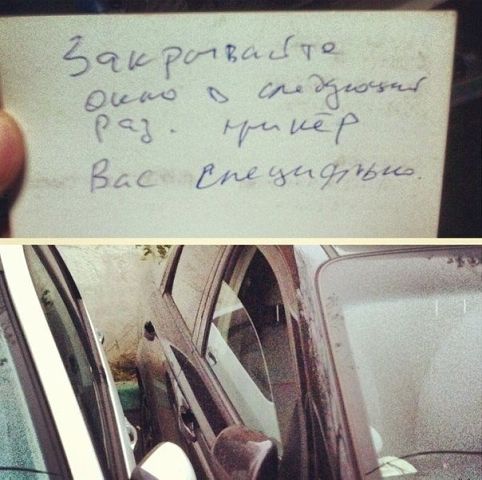 Закрывайте
окно в следующий
раз. прикёр
Вас специфтьно.